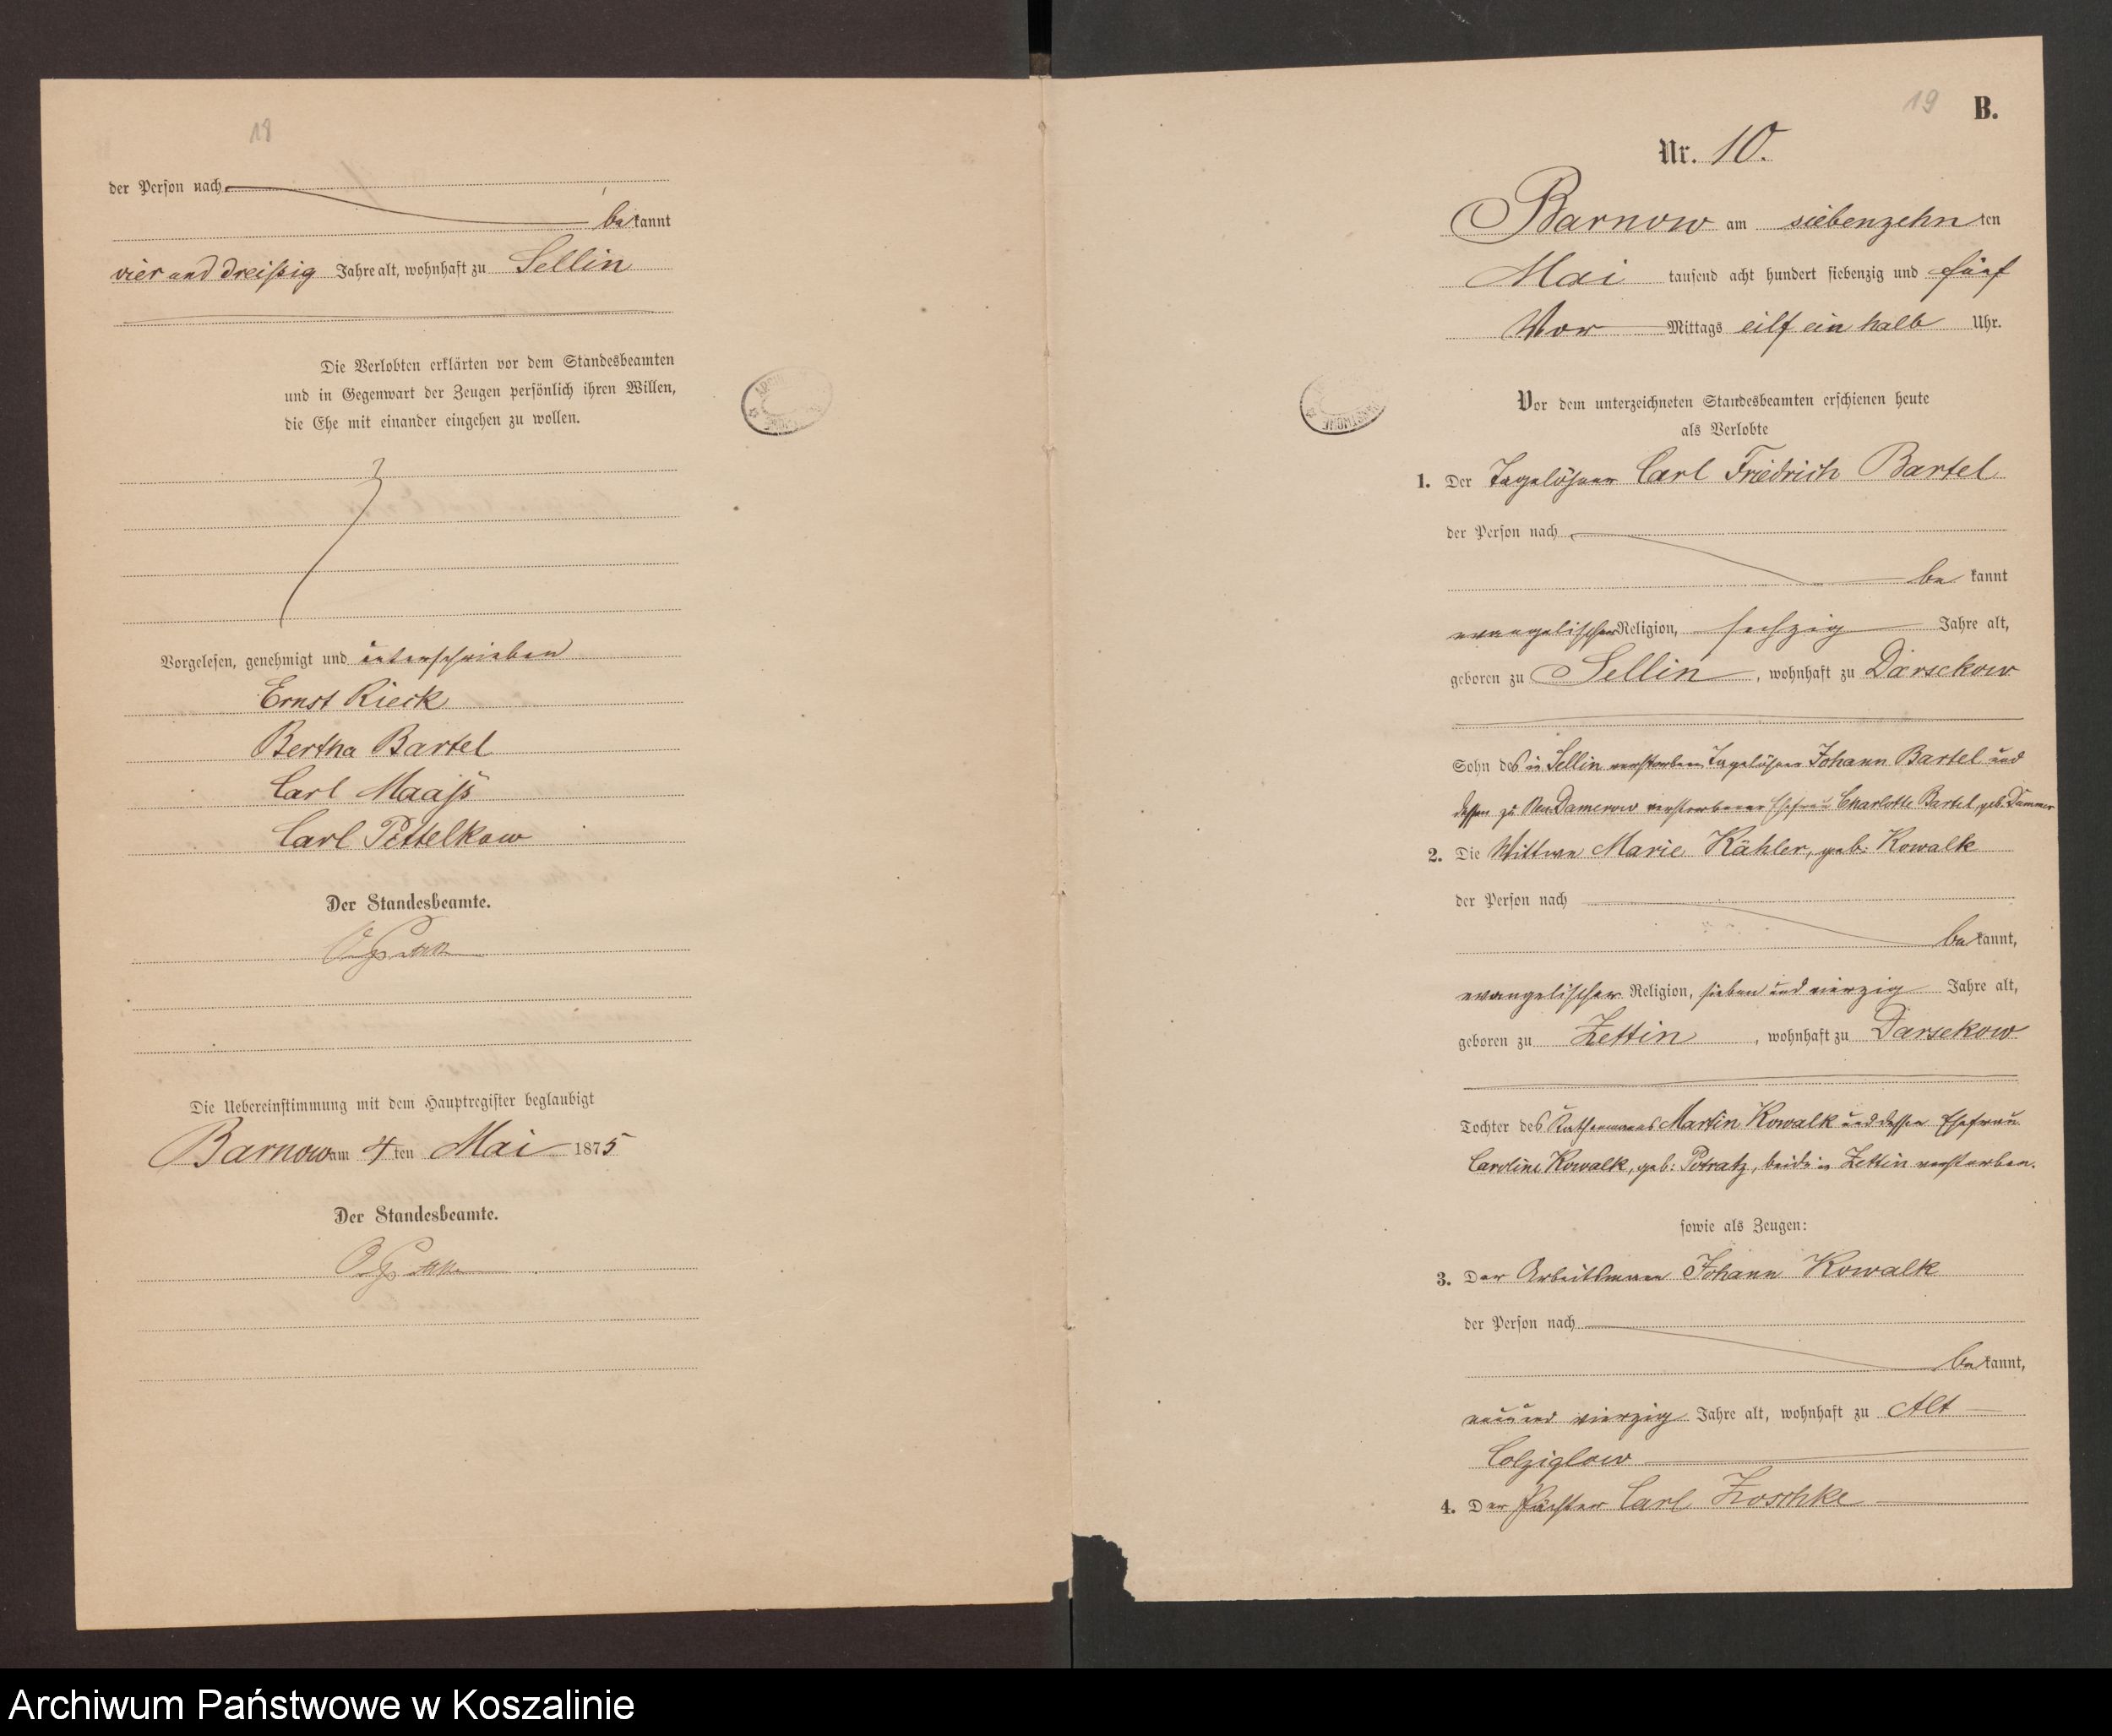 18
der Person nach
bekannt
vier und dreißig Jahre alt, wohnhaft zu Sellin
Die Verlobten erklärten vor dem Standesbeamten
und in Gegenwart der Zeugen persönlich ihren Willen,
die Ehe mit einander eingehen zu wollen.
Vorgelesen, genehmigt und unterschrieben
Ernst Rieck
Bertha Bartel
Carl Maaß
Carl Pettelkow
Der Standesbeamte.
Die Uebereinstimmung mit dem Hauptregister beglaubigt
Barnow am 4 ten Mai 1875
Der Standesbeamte.
19
B.
Nr. 10.
Barnow am siebenzehn ten
Mai tausend acht hundert siebenzig und fünf
Vor Mittags eilf ein halb Uhr.
Vor dem unterzeichneten Standesbeamten erschienen heute
als Verlobte
1. Der Tagelöhner Carl Friedrich Bartel
der Person nach
be kannt
evangelischer Religion, sechzig Jahre alt,
geboren zu Sellin, wohnhaft zu Darsekow
Sohn des in Sellin verstorbenen Tagelöhner Johann Bartel und
dessen zu Neu Damerow verstorbener Ehefrau Charlotte Bartel, geb. Dummer
2. Die Wittwe Marie Kähler, geb: Kowalk
der Person nach
bekannt,
evangelischer Religion, sieben und vierzig Jahre alt,
geboren zu Zettin, wohnhaft zu Darsekow
Tochter des Kathenmanns Martin Kowalk und dessen Ehefrau
Caroline Kowalk, geb: Petratz, beide in Zettin verstorben.
sowie als Zeugen:
3. Der Arbeitsmann Johann Kowalk
der Person nach
bekannt,
neunund vierzig Jahre alt, wohnhaft zu Alt
Colziglow
4. Der Pächter Carl Zoschke
Archiwum Państwowe w Koszalinie